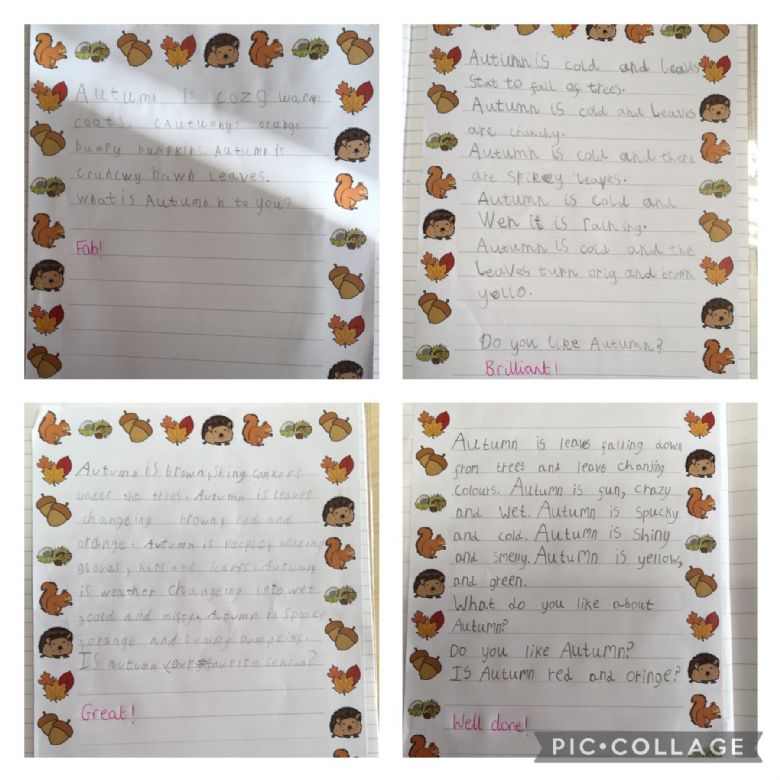 Autumn is cozy warm
coats. Autumn is orange
bumpy bumpkins. Autumn is
crunchwy brown leaves.
What is Autumn n to you?
Fab!
Autumn is cold and leavs
Stat to fall of trees.
Autumn is cold and leaves
are crunchy.
Autumn is cold and there
are spikey leaves.
Autumn is cold and
Wen it is raining.
Autumn is cold and the
leaves turn orig and brown
yollo.
Do you like Autumn?
Brilliant!
Autumn is brown, shing conkers
under the trees. Autumn is leaves
changeing brown, red and
orange. Autumn is people, wearing
gloves, hats and scarfs. Autumn
is weather changeing into wet
, cold and mistey. Autumn is spooky
, orange and bumpy pumpkins.
Is autumn your favrite season?
Great!
Autumn is leavs falling down
from trees and leavs chanjing
colours. Autumn is fun, crazy
and wet. Autumn is spucky
and cold. Autumn is shiny
and smelly. Autumn is yellow,
and green.
What do you like about
Autumn?
Do you like Autumn?
Is Autumn red and oringe?
Well done!
PIC•COLLAGE